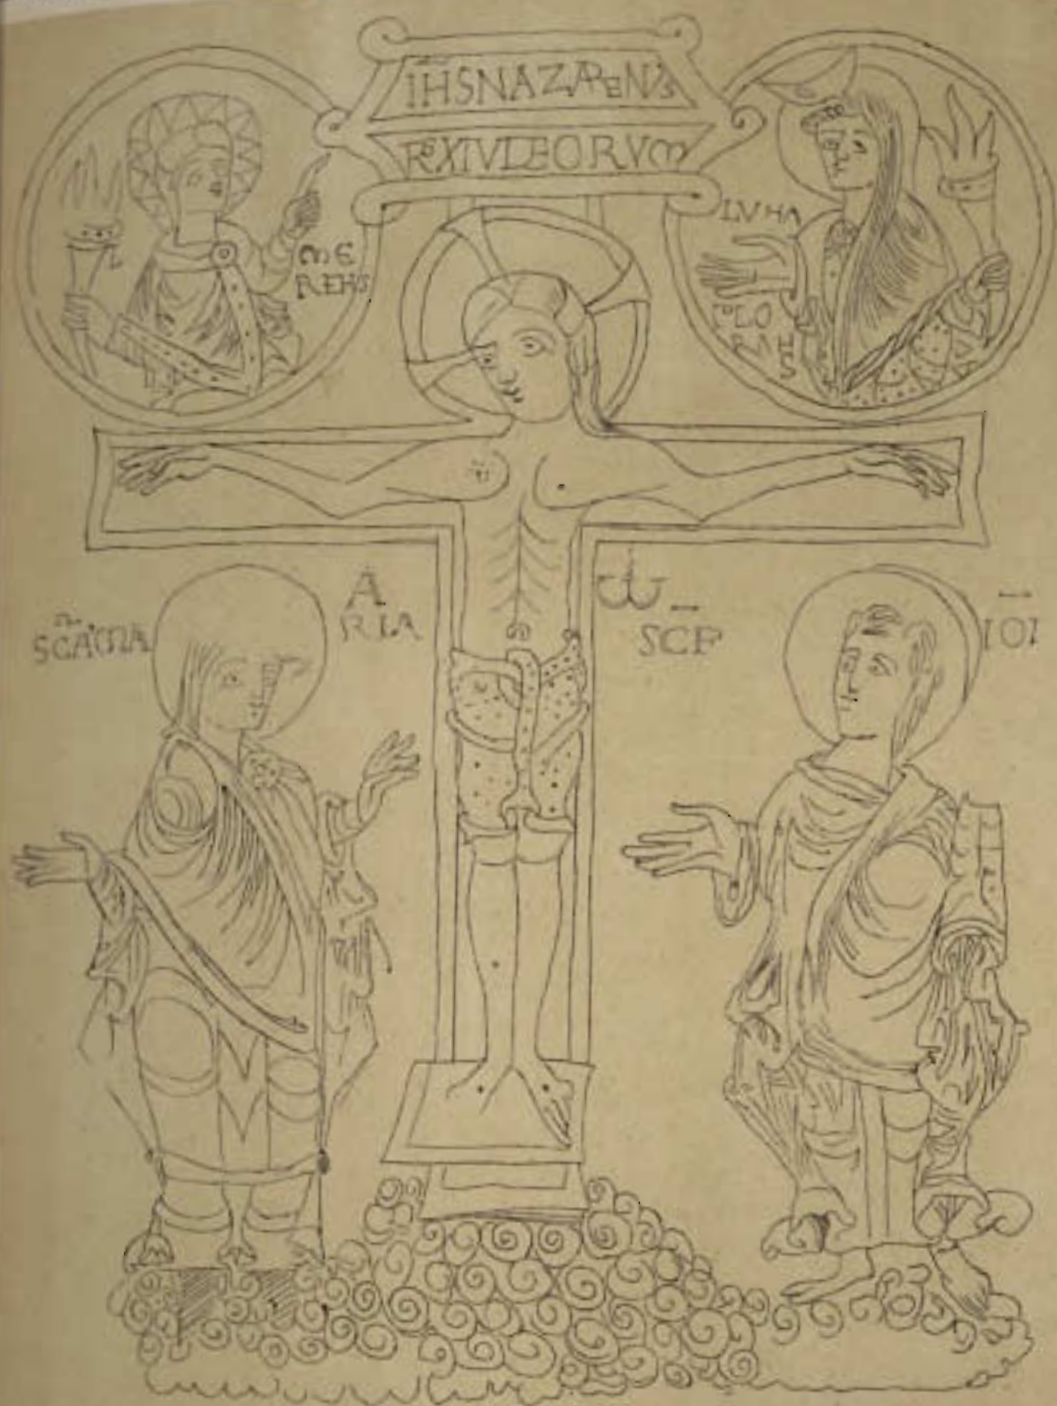 IHSNAZARENUS
REXIUDEORUM
ME
RENS
LUNA
PLO
RANS
A
ω
SCAMA
RIA
SCE
IOI